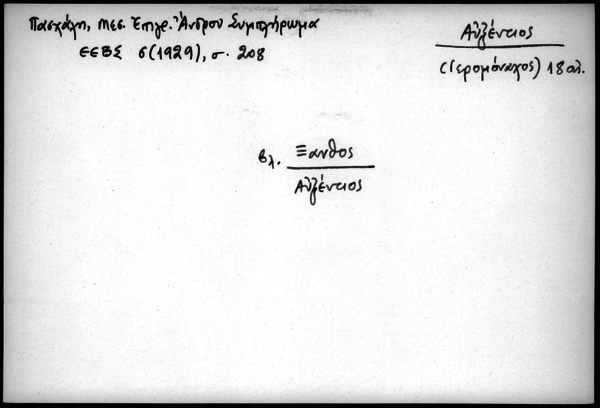 Πασχάλη, Μεσ. Ἐπιγρ. Ἄνδρου Συμπλήρωμα
ΕΕΒΣ 6(1929), σ. 208
Αὐξέντιος
(ἱερομόναχος) 18 αἰ.
βλ. Ξανθος
Αὐξέντιος